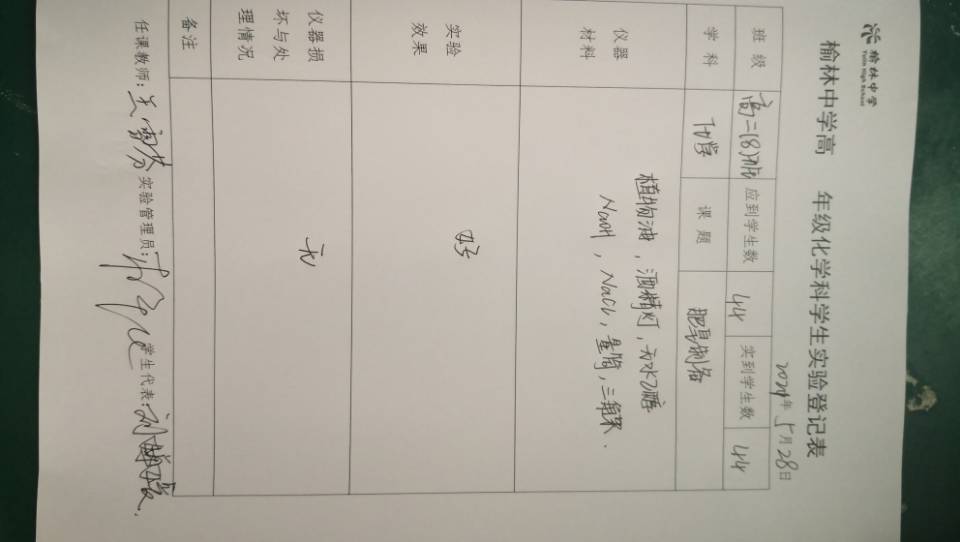 榆林中学
Yulin High School
榆林中学高 年级化学科学生实验登记表
2024年 5月28日
班级 高二(8)班 应到学生数 44 实到学生数 44
学科 化学 课题 肥皂制备
仪器材料 植物油，酒精灯，无水乙醇
NaOH，NaCl，量筒，三脚架.
实验效果 好
仪器损坏与处理情况 无
备注
任课教师： 实验管理员： 学生代表：